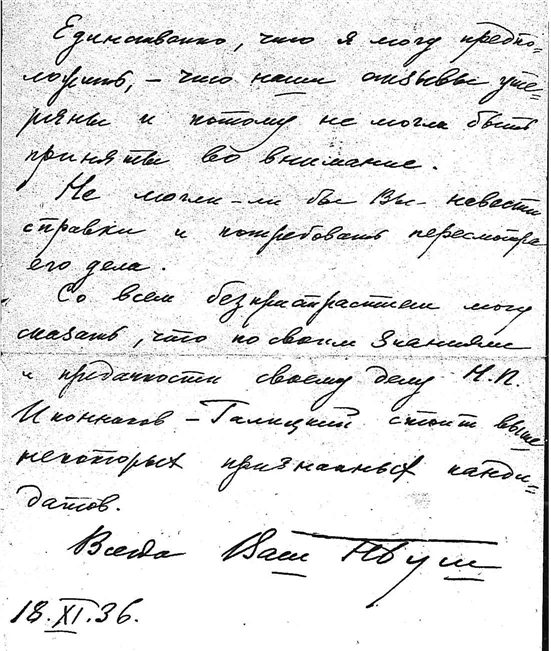 Единственно, что я могу предпо-
ложить, – что наши отзывы уте-
ряны и потому не могли быть
приняты во внимание.
Не могли-ли бы Вы навести
справки и потребовать пересмотра
его дела.
Со всем беспристрастием могу
сказать, что по своим знаниям
и преданности своему делу Н.П.
Иконников-Галицкий стоит выше
некоторых признанных канди-
датов.
Всегда Ваш НБуш
18.XI.36.